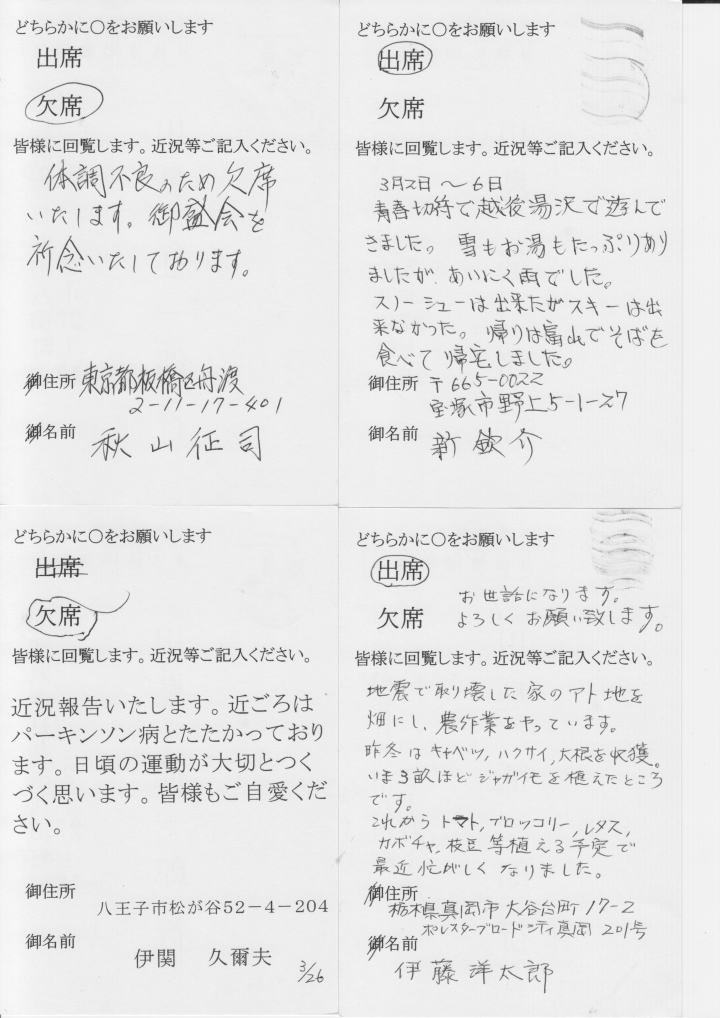 どちらかに〇をお願いします
出席
欠席
皆様に回覧します。近況等ご記入ください。
体調不良のため欠席
いたします。御盛会を
祈念いたしております。
御住所 東京都板橋区舟渡
2-11-17-401
御名前 秋山征司
どちらかに〇をお願いします
出席
欠席
皆様に回覧します。近況等ご記入ください。
3月2日〜6日
青春切符で越後湯沢で遊んで
きました。雪もお湯もたっぷりあり
ましたが、あいにく雨でした。
スノーシューは出来たがスキーは出
来なかった。帰りは富山でそばを
食べて帰宅しました。
御住所 〒665-0022
宝塚市野上5-1-27
御名前 新 欽介
どちらかに〇をお願いします
出席
欠席
皆様に回覧します。近況等ご記入ください。
近況報告いたします。近ごろは
パーキンソン病とたたかっており
ます。日頃の運動が大切とつく
づく思います。皆様もご自愛くだ
さい。
御住所
八王子市松が谷52-4-204
御名前
伊関 久爾夫
3/26
どちらかに〇をお願いします
出席
お世話になります。
欠席 よろしくお願い致します。
皆様に回覧します。近況等ご記入ください。
地震で取り壊した家のアト地を
畑にし、農作業をやっています。
昨冬はキャベツ,ハクサイ,大根を収獲。
いま3畝ほどジャガイモを植えたところ
です。
これからトマト,ブロッコリー,レタス,
カボチャ,枝豆等植える予定で
最近忙がしくなりました。
御住所
栃木県真岡市大谷台町17-2
ポレスターブロードシティ真岡201号
御名前
伊藤洋太郎